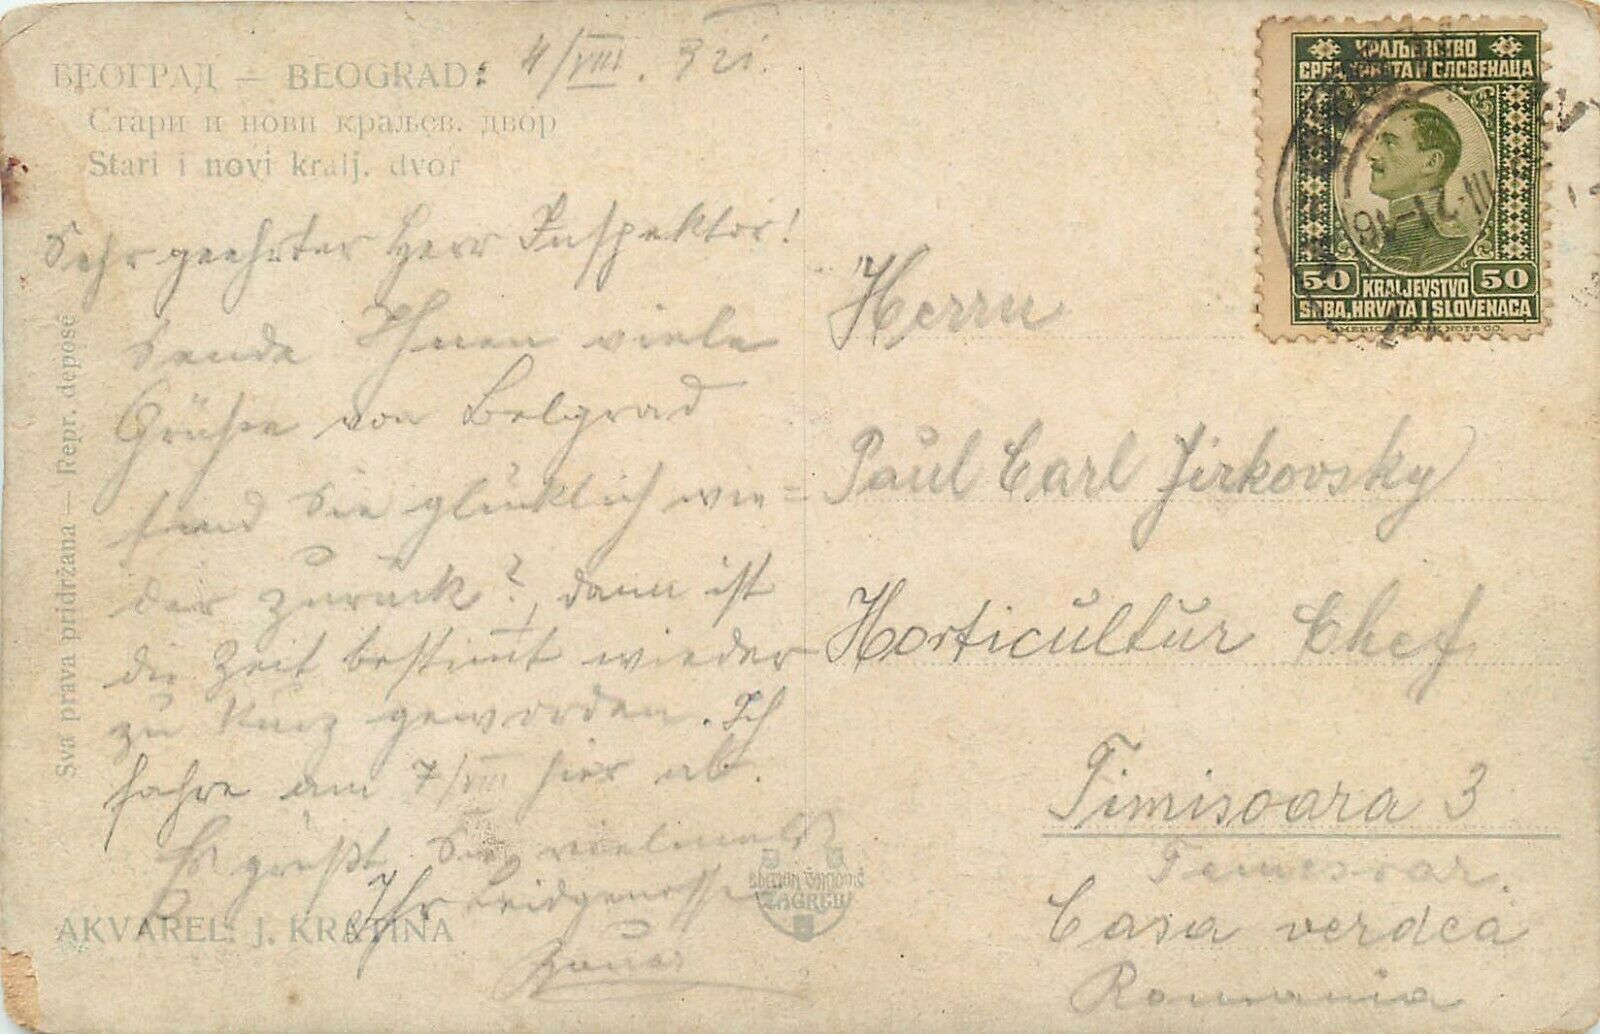 БЕОГРАД — BEOGRAD: 4/VIII.
Стари и нови краљев. двор
Stari i novi kralj. dvor
Sehr geehrter Herr Inspektor!
Sende Ihnen viele
Grüße von Belgrad
sind Sie glücklich wie=
der zurück?, dann ist
die Zeit bestimmt wieder
zu kurz geworden. Ich
fahre am 7/VIII hier ab.
Es grüßt Sie vielmals
Ihr Leidgenosse
AKVAREL: J. KRATINA
Sva prava pridržana — Repr. deposé
ZAGREB
2
КРАЉЕВСТВО
СРБА, ХРВАТА И СЛОВЕНАЦА
50 KRALJEVSTVO 50
SRBA, HRVATA I SLOVENACA
AMERICAN BANK NOTE CO.
Herrn
Paul Carl Jirkovsky
Horticultur Chef
Timisoara 3
Temesvar.
Casa verdea
Romania